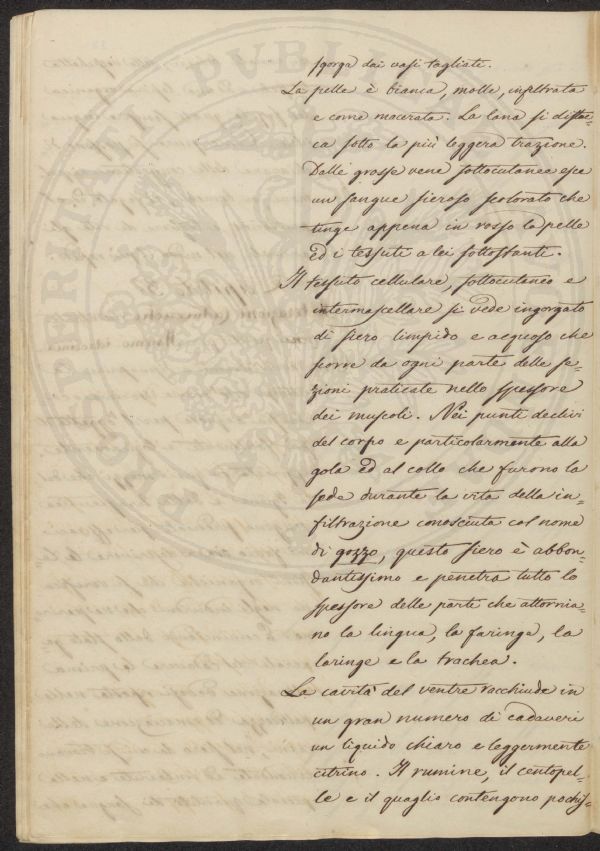 sgorga dai vasi tagliati.
La pelle è bianca, molle, infiltrata
e come macerata. La lana si distac=
ca sotto la più leggera trazione.
Dalle grosse vene sottocutanee esce
un sangue sieroso scolorato che
tinge appena in rosso la pelle
ed i tessuti a lei sottostanti.
Il tessuto cellulare, sottocutaneo e
intermascellare si vede ingorgato
di siero limpido e acquoso che
piove da ogni parte delle se=
zioni praticate nello spessore
dei muscoli. Nei punti declivi
del corpo e particolarmente alla
gola ed al collo che furono la
sede durante la vita della in=
filtrazione conosciuta col nome
di gozzo, questo siero è abbon=
dantissimo e penetra tutto lo
spessore delle parti che attornia=
no la lingua, la faringe, la
laringe e la trachea.
La cavità del ventre racchiude in
un gran numero di cadaveri
un liquido chiaro e leggermente
citrino. Il rumine, il centopel=
le e il quaglio contengono pochis=
PUBLICA